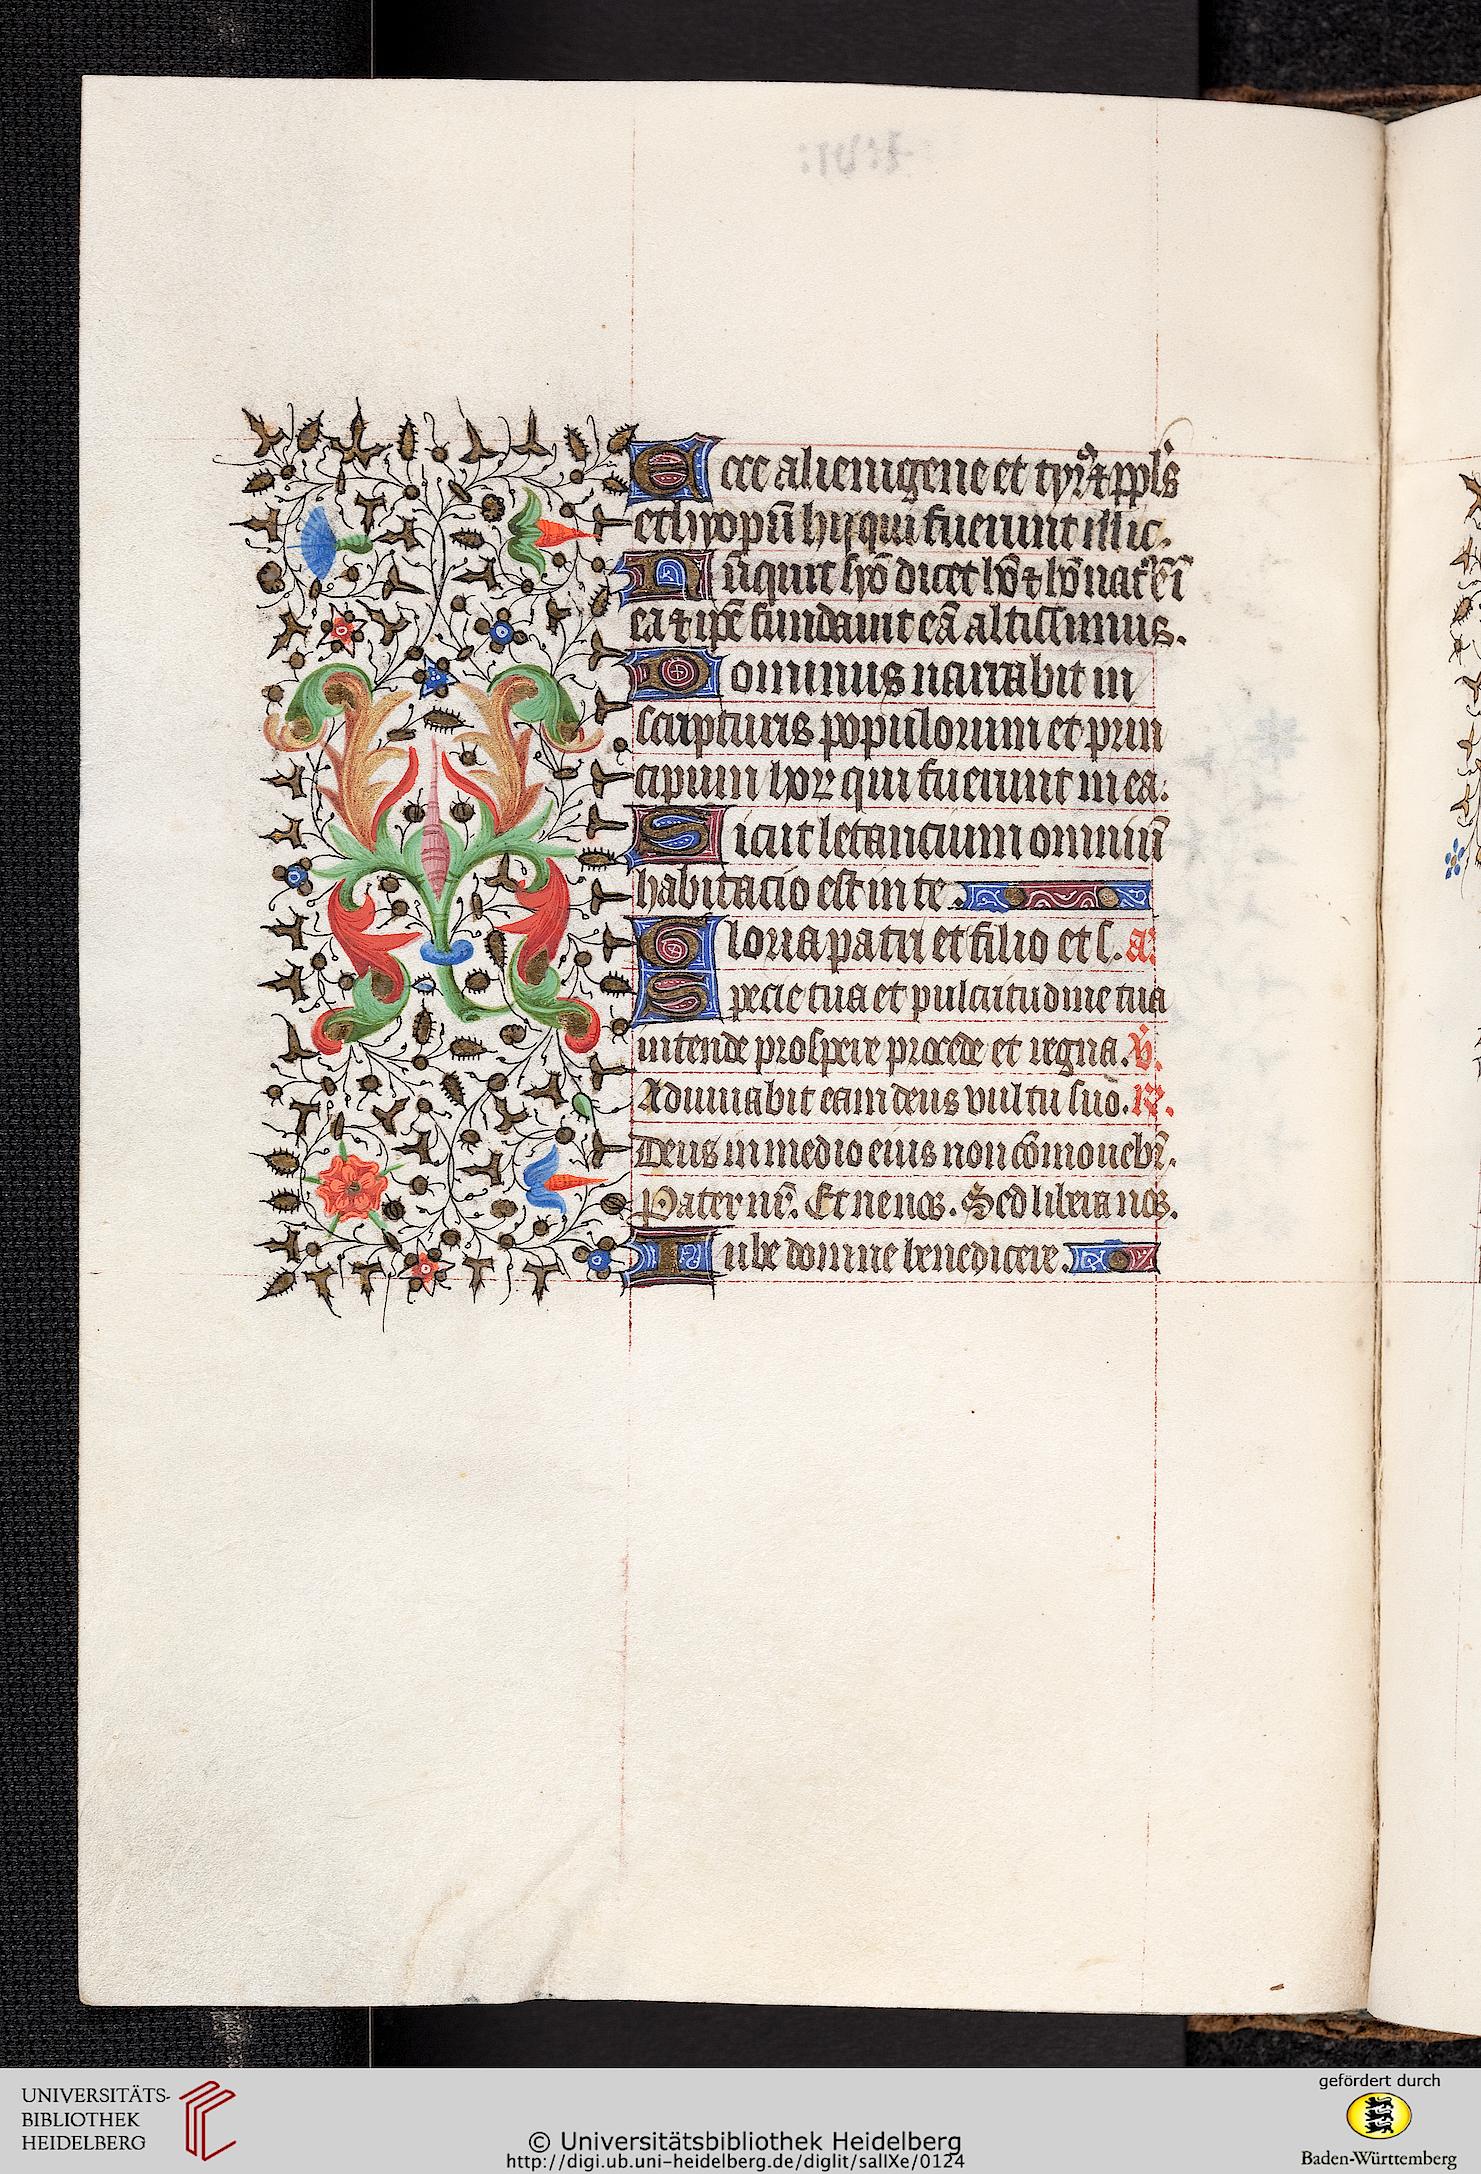 Ecce alienigene et tyr⁹ ⁊ ppl's
ethyopū hii qui fuerunt illic.
Nūquit syō dicet hō ⁊ hō nat⁹ ē ī
ea ⁊ ip̄e fundauit eā altissimus.
Dominus narrabit in
scripturis populorum et prin
cipum hoꝝ qui fuerunt in ea.
Sicut letancium omniū
habitacio est in te.
Gloria patri et filio et s. a.
Specie tua et pulcritudine tua
intende prospere procede et regna. ℣.
Adiuuabit eam deus vultu suo. ℟.
Deus in medio eius non cōmouebr̄.
Pater nr̄. Et ne nos. Sed libera nos.
Iube domine benedicere.
UNIVERSITÄTS-
BIBLIOTHEK
HEIDELBERG
© Universitätsbibliothek Heidelberg
http://digi.ub.uni-heidelberg.de/diglit/salIXe/0124
gefördert durch
Baden-Württemberg